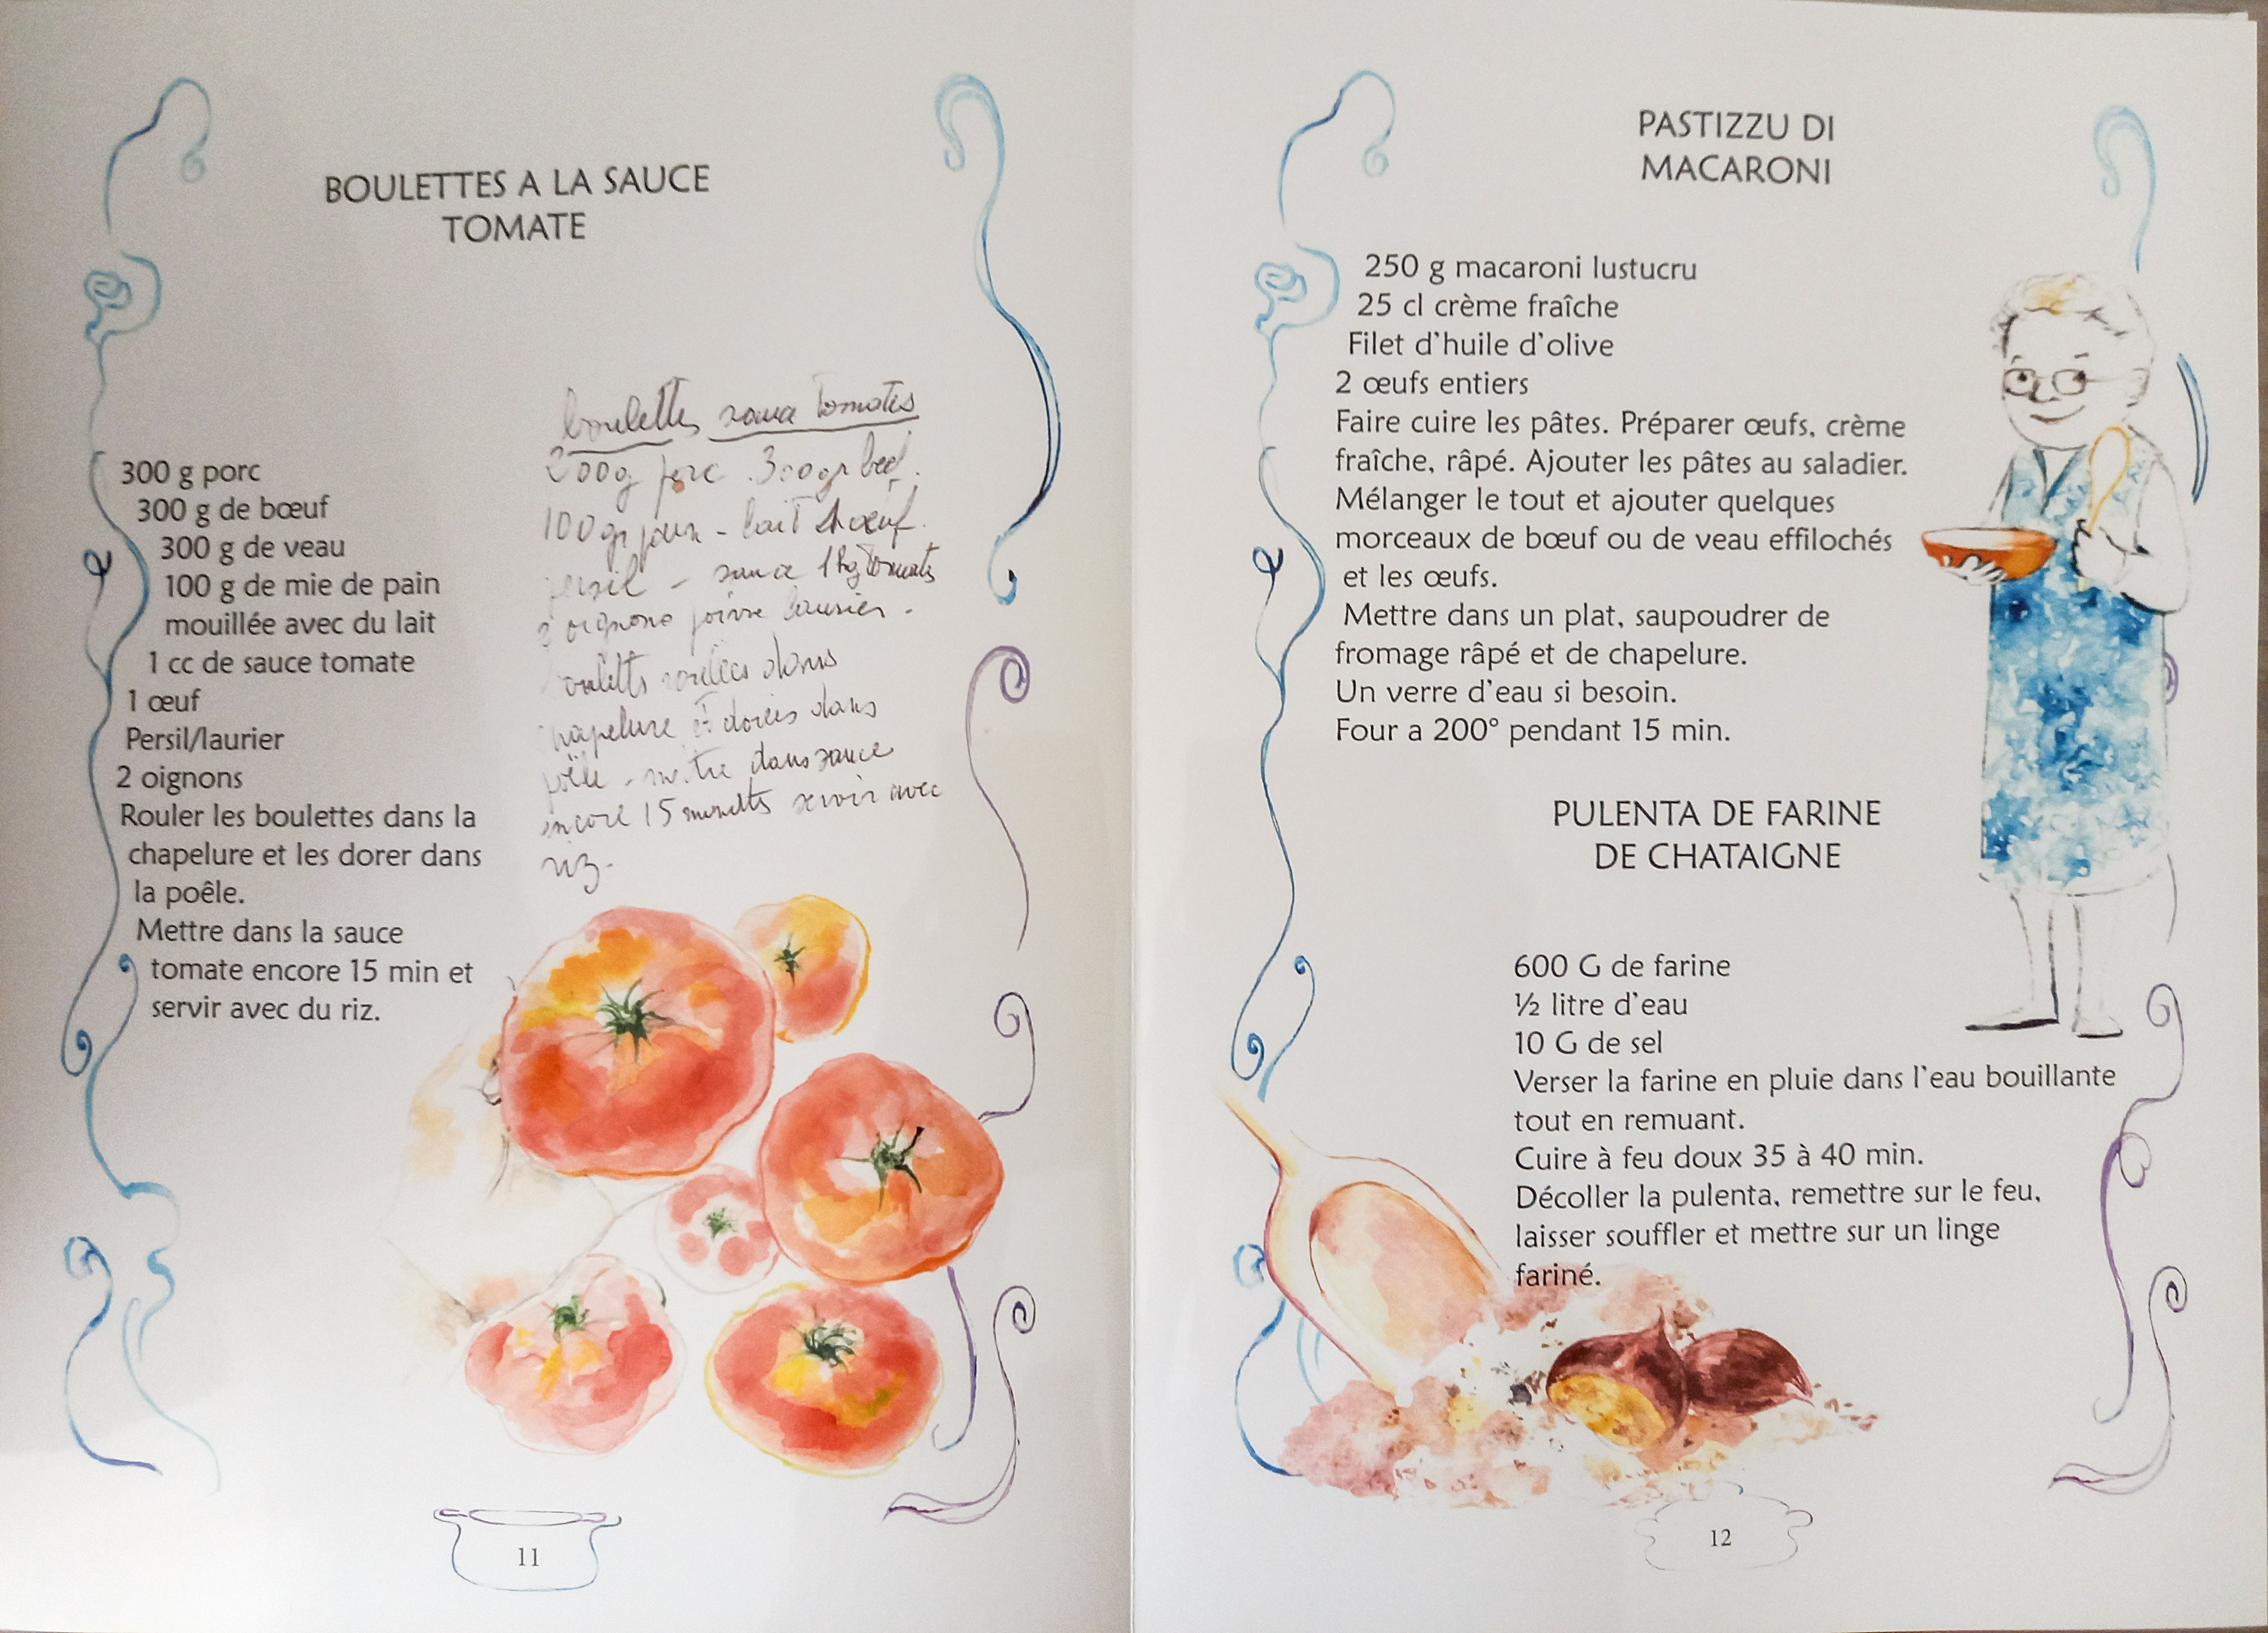 BOULETTES A LA SAUCE
TOMATE
300 g porc
300 g de bœuf
300 g de veau
100 g de mie de pain
mouillée avec du lait
1 cc de sauce tomate
1 œuf
Persil/laurier
2 oignons
Rouler les boulettes dans la
chapelure et les dorer dans
la poêle.
Mettre dans la sauce
tomate encore 15 min et
servir avec du riz.
boulettes sauce tomates
porc . 300gr
100gr pain - lait 1 œuf.
persil - sauce 1kg tomates
oignons poivre laurier -
roulées dans
et dorées dans
poêle - mettre dans sauce
encore 15 minutes servir avec
riz-
11
PASTIZZU DI
MACARONI
250 g macaroni lustucru
25 cl crème fraîche
Filet d'huile d'olive
2 œufs entiers
Faire cuire les pâtes. Préparer œufs, crème
fraîche, râpé. Ajouter les pâtes au saladier.
Mélanger le tout et ajouter quelques
morceaux de bœuf ou de veau effilochés
et les œufs.
Mettre dans un plat, saupoudrer de
fromage râpé et de chapelure.
Un verre d'eau si besoin.
Four a 200° pendant 15 min.
PULENTA DE FARINE
DE CHATAIGNE
600 G de farine
½ litre d'eau
10 G de sel
Verser la farine en pluie dans l'eau bouillante
tout en remuant.
Cuire à feu doux 35 à 40 min.
Décoller la pulenta, remettre sur le feu,
laisser souffler et mettre sur un linge
fariné.
12